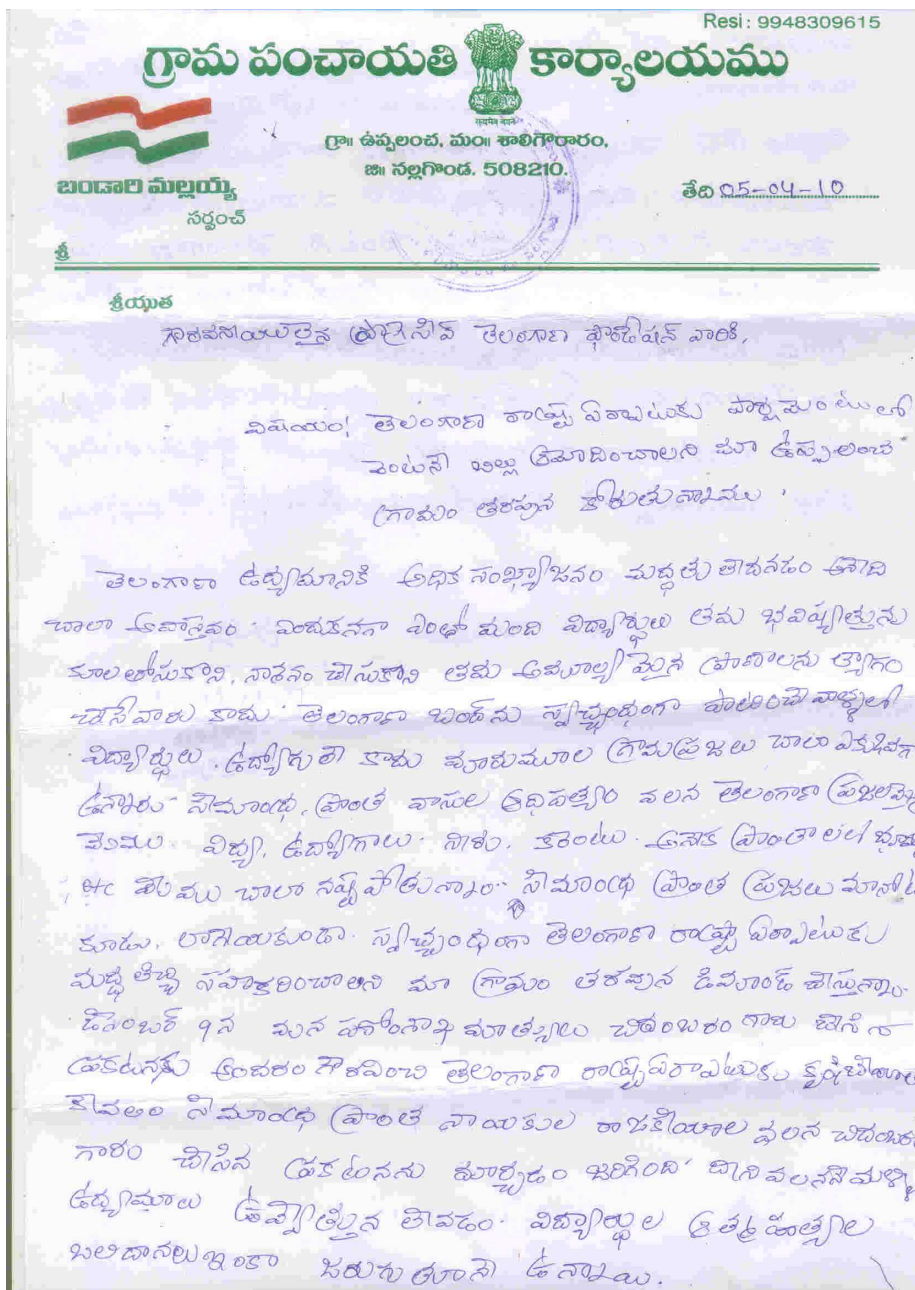 Resi : 9948309615
గ్రామ పంచాయతి కార్యాలయము
सत्यमेव जयते
గ్రా॥ ఉప్పలంచ, మం॥ శాలిగౌరారం,
జి॥ నల్లగొండ. 508210.
బండారి మల్లయ్య
సర్పంచ్
తేది 05-04-10
శ్రీ
శ్రీయుత
గౌరవనీయులైన ప్రోగ్రెసివ్ తెలంగాణ ఫౌండేషన్ వారికి,
విషయం: తెలంగాణా రాష్ట్ర ఏర్పాటుకు పార్లమెంటులో
వెంటనే బిల్లు ఆమోదించాలని మా ఉప్పలంచ
గ్రామం తరపున కోరుతున్నాము.
తెలంగాణా ఉద్యమానికి అధిక సంఖ్యాజనం మద్ధతు లేదనడం అనేది
చాలా అవాస్తవం. ఎందుకనగా ఎంతో మంది విద్యార్థులు తమ భవిష్యత్తును
కూలతోసుకొని, నాశనం చేసుకొని తమ అమూల్యమైన ప్రాణాలను త్యాగం
చేసేవారు కాదు. తెలంగాణా బంద్‌ను స్వచ్ఛంధంగా పాటించే వాళ్ళలో
విద్యార్థులు, ఉద్యోగులే కాదు మారుమూల గ్రామప్రజలు చాలా ఎక్కువగా
ఉన్నారు. సీమాంధ్ర ప్రాంత వాసుల ఆధిపత్యం వలన తెలంగాణా
మేము విద్య, ఉద్యోగాలు, నీళు, కరెంటు. అనేక
etc మేము చాలా నష్ట పోతున్నాం. సీమాంధ్ర ప్రాంత ప్రజలు
కూడు, లాగేయకుండా. స్వచ్ఛంధంగా తెలంగాణా రాష్ట్ర ఏర్పాటుకు
మద్ధతిచ్చి సహకరించాలని మా గ్రామం తరపున డిమాండ్ చేస్తున్నాం.
డిసెంబర్ 9న మన హోంశాఖ మాత్యులు చిదంబరం గారు చేసిన
ప్రకటనకు అందరం గౌరవించి తెలంగాణా రాష్ట్ర ఏర్పాటుకు
కేవలం సీమాంధ్ర ప్రాంత నాయకుల రాజకీయాల వలన చిదంబరం
గారు చేసిన ప్రకటనను మార్చడం జరిగింది. దీని వలననే మళ్ళి
ఉద్యమాలు ఉవ్వెత్తున లేవడం. విద్యార్థుల ఆత్మహత్యల
బలిదానలు ఇంకా జరుగుతూనే ఉన్నాయి.